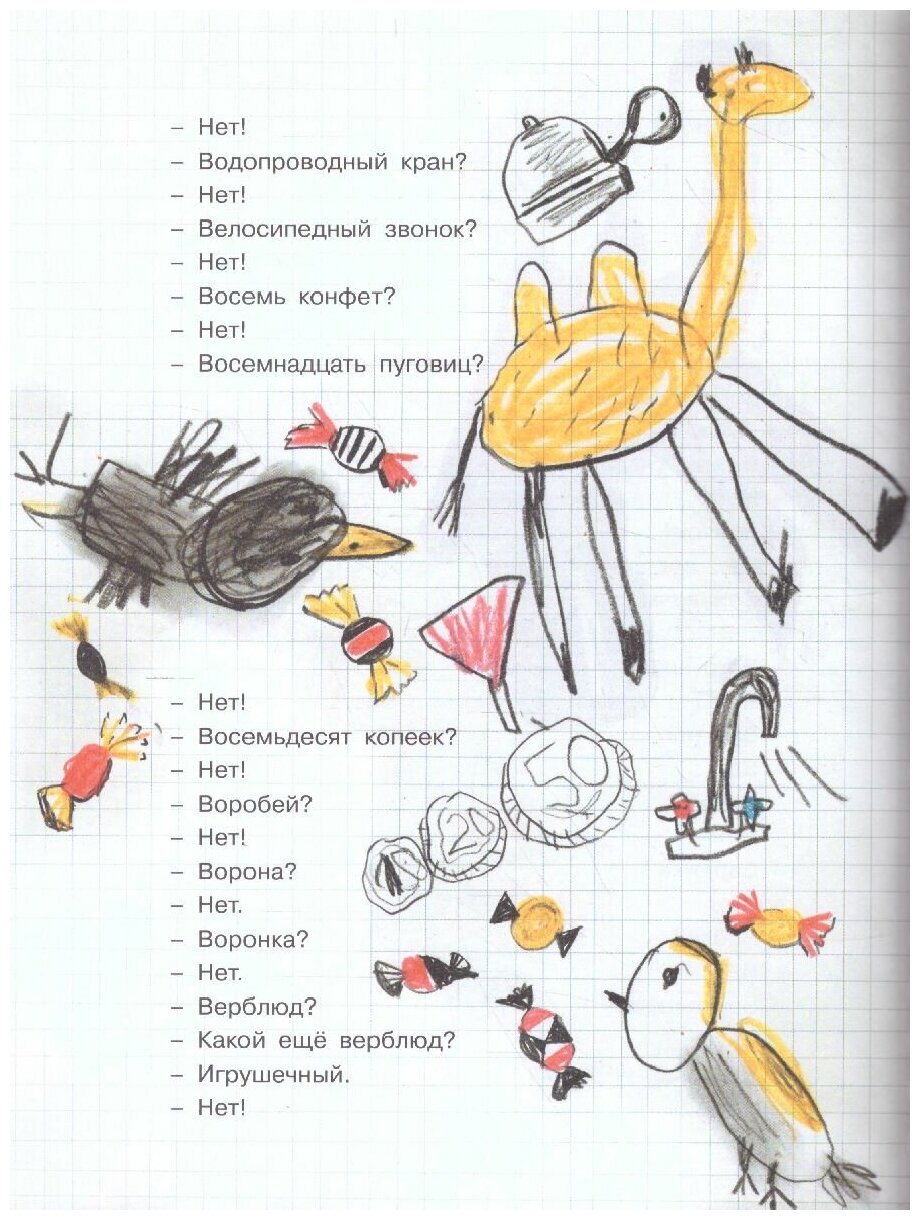 – Нет!
– Водопроводный кран?
– Нет!
– Велосипедный звонок?
– Нет!
– Восемь конфет?
– Нет!
– Восемнадцать пуговиц?
– Нет!
– Восемьдесят копеек?
– Нет!
– Воробей?
– Нет!
– Ворона?
– Нет.
– Воронка?
– Нет.
– Верблюд?
– Какой ещё верблюд?
– Игрушечный.
– Нет!
50
20